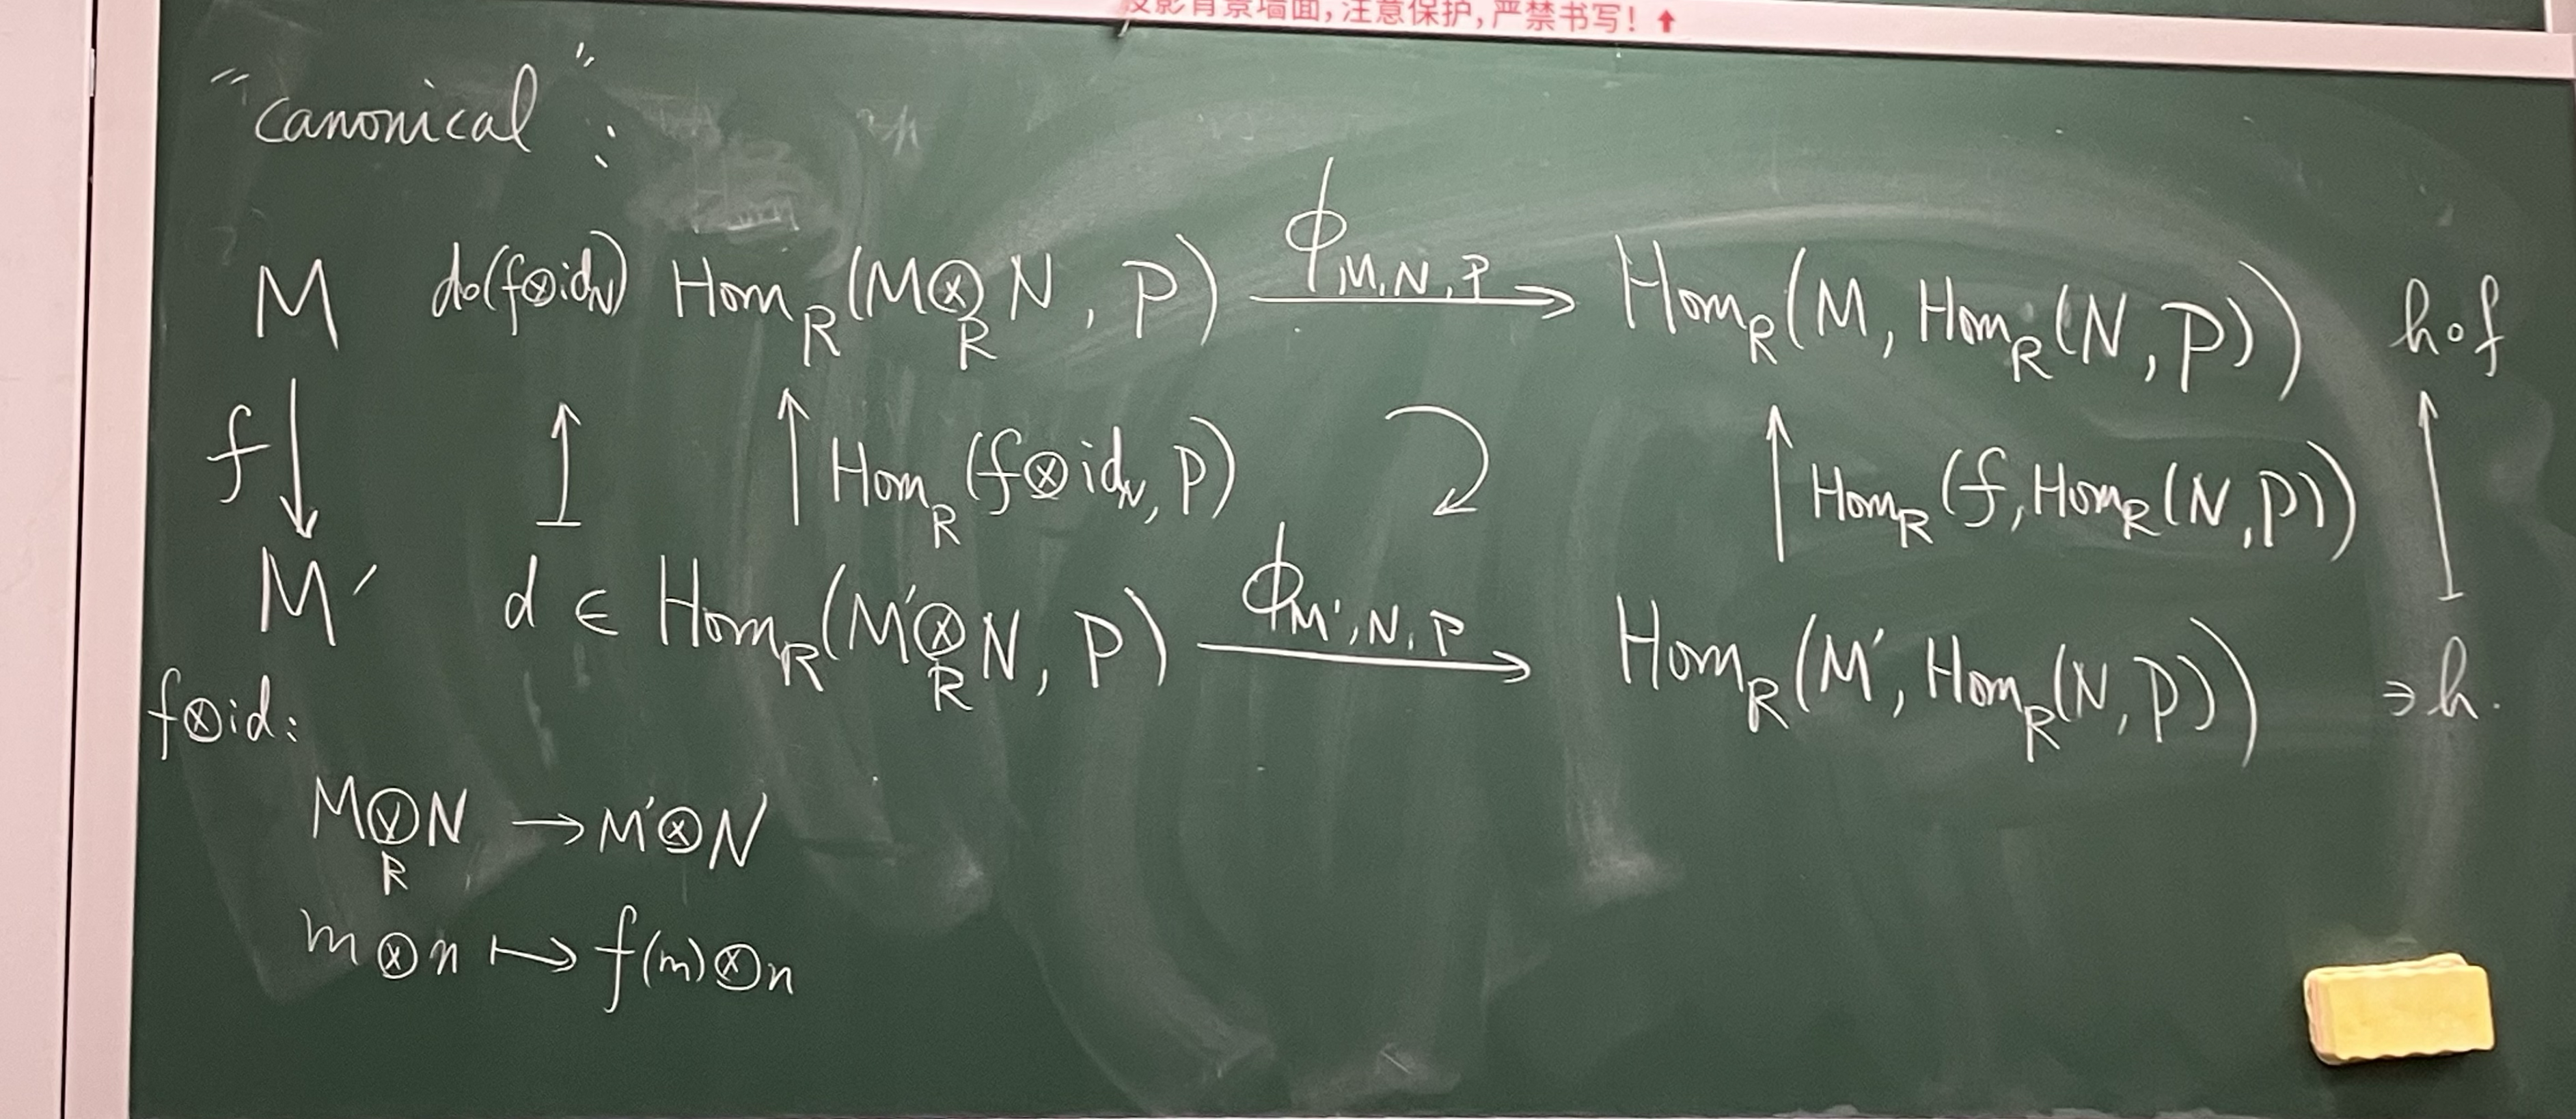 投影背景墙面,注意保护,严禁书写!⬆
"canonical":
M d∘(f⊗id_N) Hom_R(M⊗_R N, P) —ϕ_{M,N,P}→ Hom_R(M, Hom_R(N,P)) h∘f
f↓ ↥ ↑Hom_R(f⊗id_N, P) ⤵ ↑Hom_R(f, Hom_R(N,P)) ↥
M′ d ∈ Hom_R(M′⊗_R N, P) —ϕ_{M′,N,P}→ Hom_R(M′, Hom_R(N,P)) ∋ h.
f⊗id:
M⊗_R N → M′⊗N
m⊗n ↦ f(m)⊗n